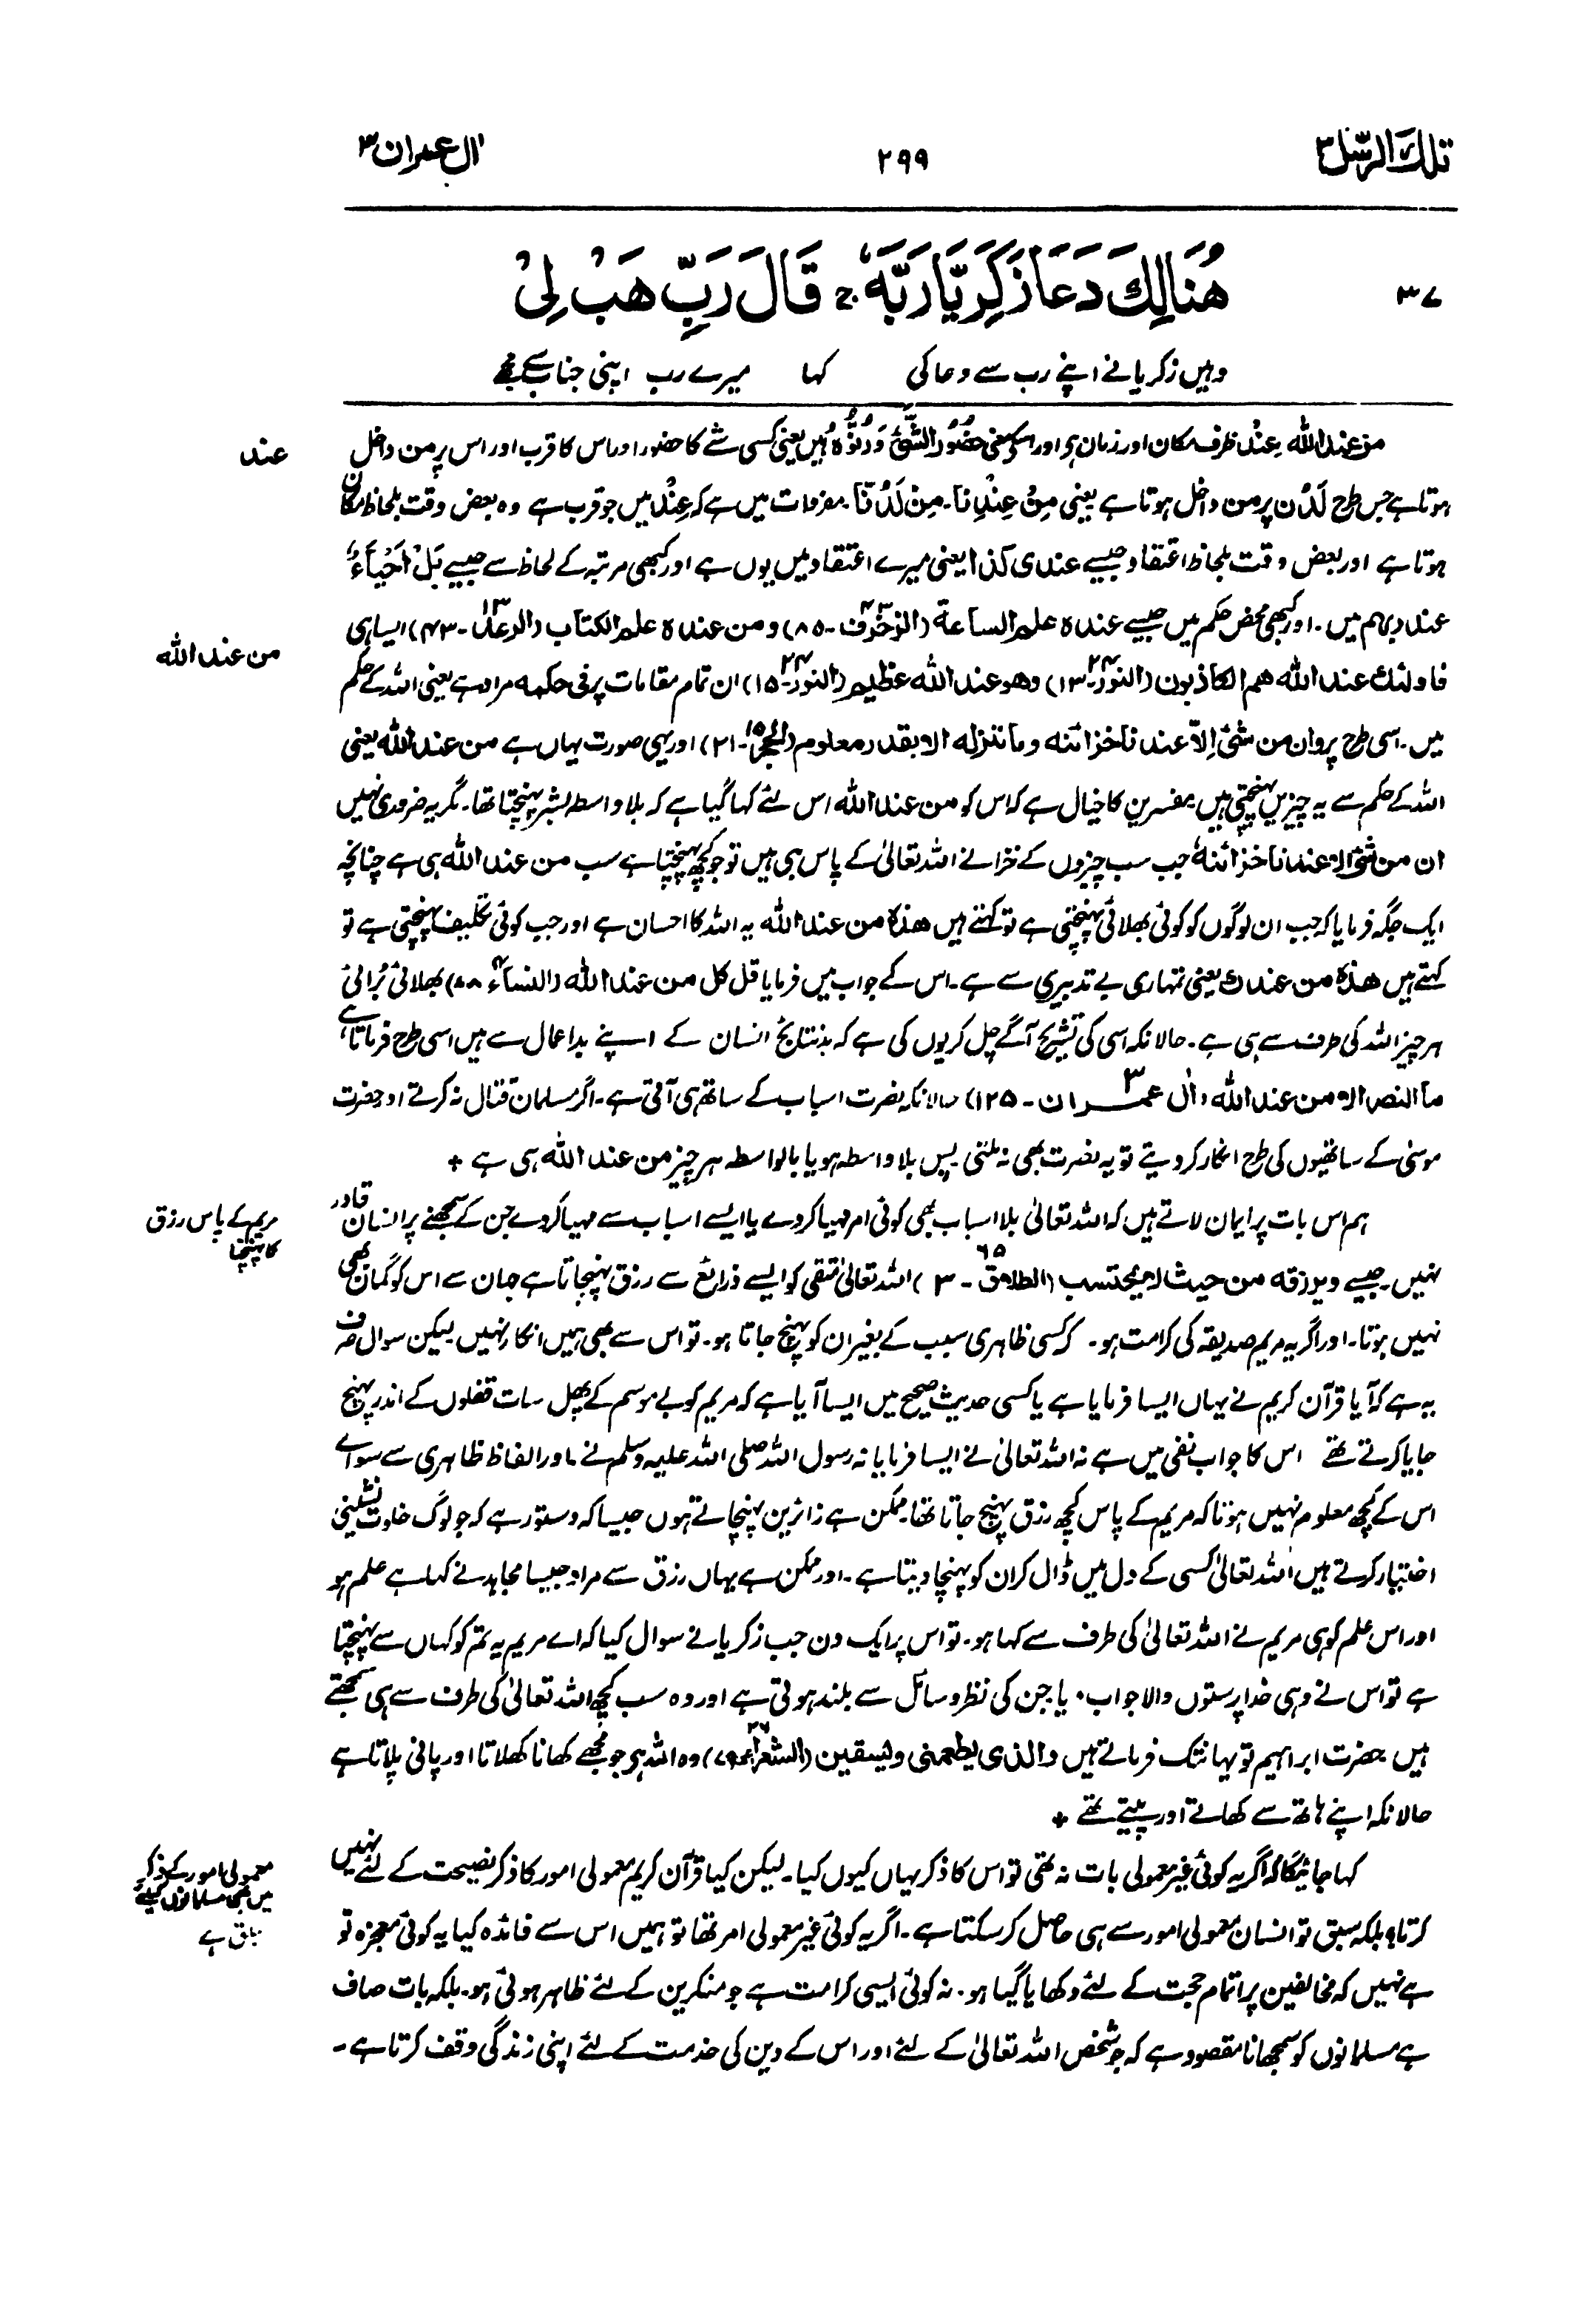 تلك الرسل ۳
۲۹۹
اٰل عمران ۳
۳۷
هُنَالِكَ دَعَا زَكَرِيَّا رَبَّهٗ ۚ قَالَ رَبِّ هَبْ لِيْ
وہیں زکریا نے اپنے رب سے دعا کی کہا میرے رب اپنی جناب سے مجھے
عند
من عند الله۔ عِنْد ظرف مکان اور زمان ہے اور اسکے معنی حُضُوْرُ الشَّیْءِ وَدُنُوُّہٗ ہیں یعنی کسی شے کا حضور اور اس کا قرب اور اس پر من داخل
ہوتا ہے جس طرح لَدُن پر من داخل ہوتا ہے یعنی مِنْ عِنْدِنا۔ مِنْ لَدُنَّا۔ مفردات میں ہے کہ عِنْد میں جو قرب ہے وہ بعض وقت بلحاظ مکان
ہوتا ہے اور بعض وقت بلحاظ اعتقاد جیسے عندی کذا یعنی میرے اعتقاد میں یوں ہے اور کبھی مرتبہ کے لحاظ سے جیسے بَلْ اَحْیَآءٌ
عند ربهم میں۔ اور کبھی محض حکم میں جیسے عنده علم الساعة (الزخرف ۴۳۔ ۸۵) و من عنده علم الكتاب (الرعد ۱۳۔ ۴۳) ایسا ہی
من عند الله
فاولئك عند الله هم الكاذبون (النور ۲۴۔ ۱۳) وهو عند الله عظيم (النور ۲۴۔ ۱۵) ان تمام مقامات پر فی حکمہ مراد ہے یعنی اللہ کے حکم
میں۔ اسی طرح پر وان من شئ اِلّا عندنا خزائنه وما ننزله الا بقدر معلوم (الحجر ۱۵۔ ۲۱) اور یہی صورت یہاں ہے من عند الله یعنی
اللہ کے حکم سے یہ چیزیں پہنچتی ہیں۔ مفسرین کا خیال ہے کہ اس کو من عند الله اس لئے کہا گیا ہے کہ بلا واسطہ بشر پہنچتا تھا۔ مگر یہ ضروری نہیں
ان من شئ الا عندنا خزائنه جب سب چیزوں کے خزانے اللہ تعالیٰ کے پاس ہی ہیں تو جو کچھ پہنچتا ہے سب من عند الله ہی ہے چنانچہ
ایک جگہ فرمایا کہ جب ان لوگوں کو کوئی بھلائی پہنچتی ہے تو کہتے ہیں هذه من عند الله یہ اللہ کا احسان ہے اور جب کوئی تکلیف پہنچتی ہے تو
کہتے ہیں هذه من عندك یعنی تمہاری بے تدبیری سے ہے۔ اس کے جواب میں فرمایا قل كل من عند الله (النساء ۴۔ ۷۸) بھلائی بُرائی
ہر چیز اللہ کی طرف سے ہی ہے۔ حالانکہ اسی کی تشریح آگے چل کر یوں کی ہے کہ بدنتائج انسان کے اپنے بداعمال سے ہیں اسی طرح فرماتا ہے
ما النصر الا من عند الله (اٰل عمران ۳۔ ۱۲۵) حالانکہ نصرت اسباب کے ساتھ ہی آتی ہے۔ اگر مسلمان قتال نہ کرتے اور حضرت
موسیٰ کے ساتھیوں کی طرح انکار کر دیتے تو یہ نصرت بھی نہ ملتی پس بلا واسطہ ہو یا بالواسطہ ہر چیز من عند الله ہی ہے +
مریم کے پاس رزق
کا پہنچنا
ہم اس بات پر ایمان لاتے ہیں کہ اللہ تعالیٰ بلا اسباب بھی کوئی امر مہیا کر دے یا ایسے اسباب سے مہیا کر دے جن کے سمجھنے پر انسان قادر
نہیں۔ جیسے ويرزقه من حيث لا يحتسب (الطلاق ۶۵۔ ۳) اللہ تعالیٰ متقی کو ایسے ذرائع سے رزق پہنچاتا ہے جہان سے اس کو گمان بھی
نہیں ہوتا۔ اور اگر یہ مریم صدیقہ کی کرامت ہو۔ کہ کسی ظاہری سبب کے بغیر ان کو پہنچ جاتا ہو۔ تو اس سے بھی ہمیں انکار نہیں لیکن سوال صرف
یہ ہے کہ آیا قرآن کریم نے یہاں ایسا فرمایا ہے یا کسی حدیث صحیح میں ایسا آیا ہے کہ مریم کو بے موسم کے پھل سات قفلوں کے اندر پہنچ
جایا کرتے تھے اس کا جواب نفی میں ہے نہ اللہ تعالیٰ نے ایسا فرمایا نہ رسول اللہ صلی اللہ علیہ وسلم نے۔ اور الفاظ ظاہری سے سوائے
اس کے کچھ معلوم نہیں ہوتا کہ مریم کے پاس کچھ رزق پہنچ جاتا تھا۔ ممکن ہے زائرین پہنچاتے ہوں جیسا کہ دستور ہے کہ جو لوگ خلوت نشینی
اختیار کرتے ہیں اللہ تعالیٰ کسی کے دل میں ڈال کر ان کو پہنچا دیتا ہے۔ اور ممکن ہے یہاں رزق سے مراد جیسا مجاہد نے کہا ہے علم ہو
اور اس علم کو ہی مریم نے اللہ تعالیٰ کی طرف سے کہا ہو۔ تو اس پر ایک دن جب زکریا نے سوال کیا کہ اے مریم یہ تم کو کہاں سے پہنچتا
ہے تو اس نے وہی خدا پرستوں والا جواب۔ یا جن کی نظر وسائل سے بلند ہوتی ہے اور وہ سب کچھ اللہ تعالیٰ کی طرف سے ہی سمجھتے
ہیں حضرت ابراہیم تو یہانتک فرماتے ہیں والذی یطعمنی ویسقین (الشعراء ۲۶۔ ۷۹) وہ اللہ ہی جو مجھے کھانا کھلاتا اور پانی پلاتا ہے
حالانکہ اپنے ہاتھ سے کھاتے اور پیتے تھے +
معمولی امور کے ذکر
میں بھی مسلمانوں کیلئے
سبق ہے
کہا جائیگا کہ اگر یہ کوئی غیر معمولی بات نہ تھی تو اس کا ذکر یہاں کیوں کیا۔ لیکن کیا قرآن کریم معمولی امور کا ذکر نصیحت کے لئے نہیں
کرتا؟ بلکہ سبق تو انسان معمولی امور سے ہی حاصل کر سکتا ہے۔ اگر یہ کوئی غیر معمولی امر تھا تو ہمیں اس سے فائدہ کیا یہ کوئی معجزہ تو
ہے نہیں کہ مخالفین پر اتمام حجت کے لئے دکھایا گیا ہو۔ نہ کوئی ایسی کرامت ہے جو منکرین کے لئے ظاہر ہوئی ہو۔ بلکہ بات صاف
ہے مسلمانوں کو سمجھانا مقصود ہے کہ جو شخص اللہ تعالیٰ کے لئے اور اس کے دین کی خدمت کے لئے اپنی زندگی وقف کرتا ہے۔